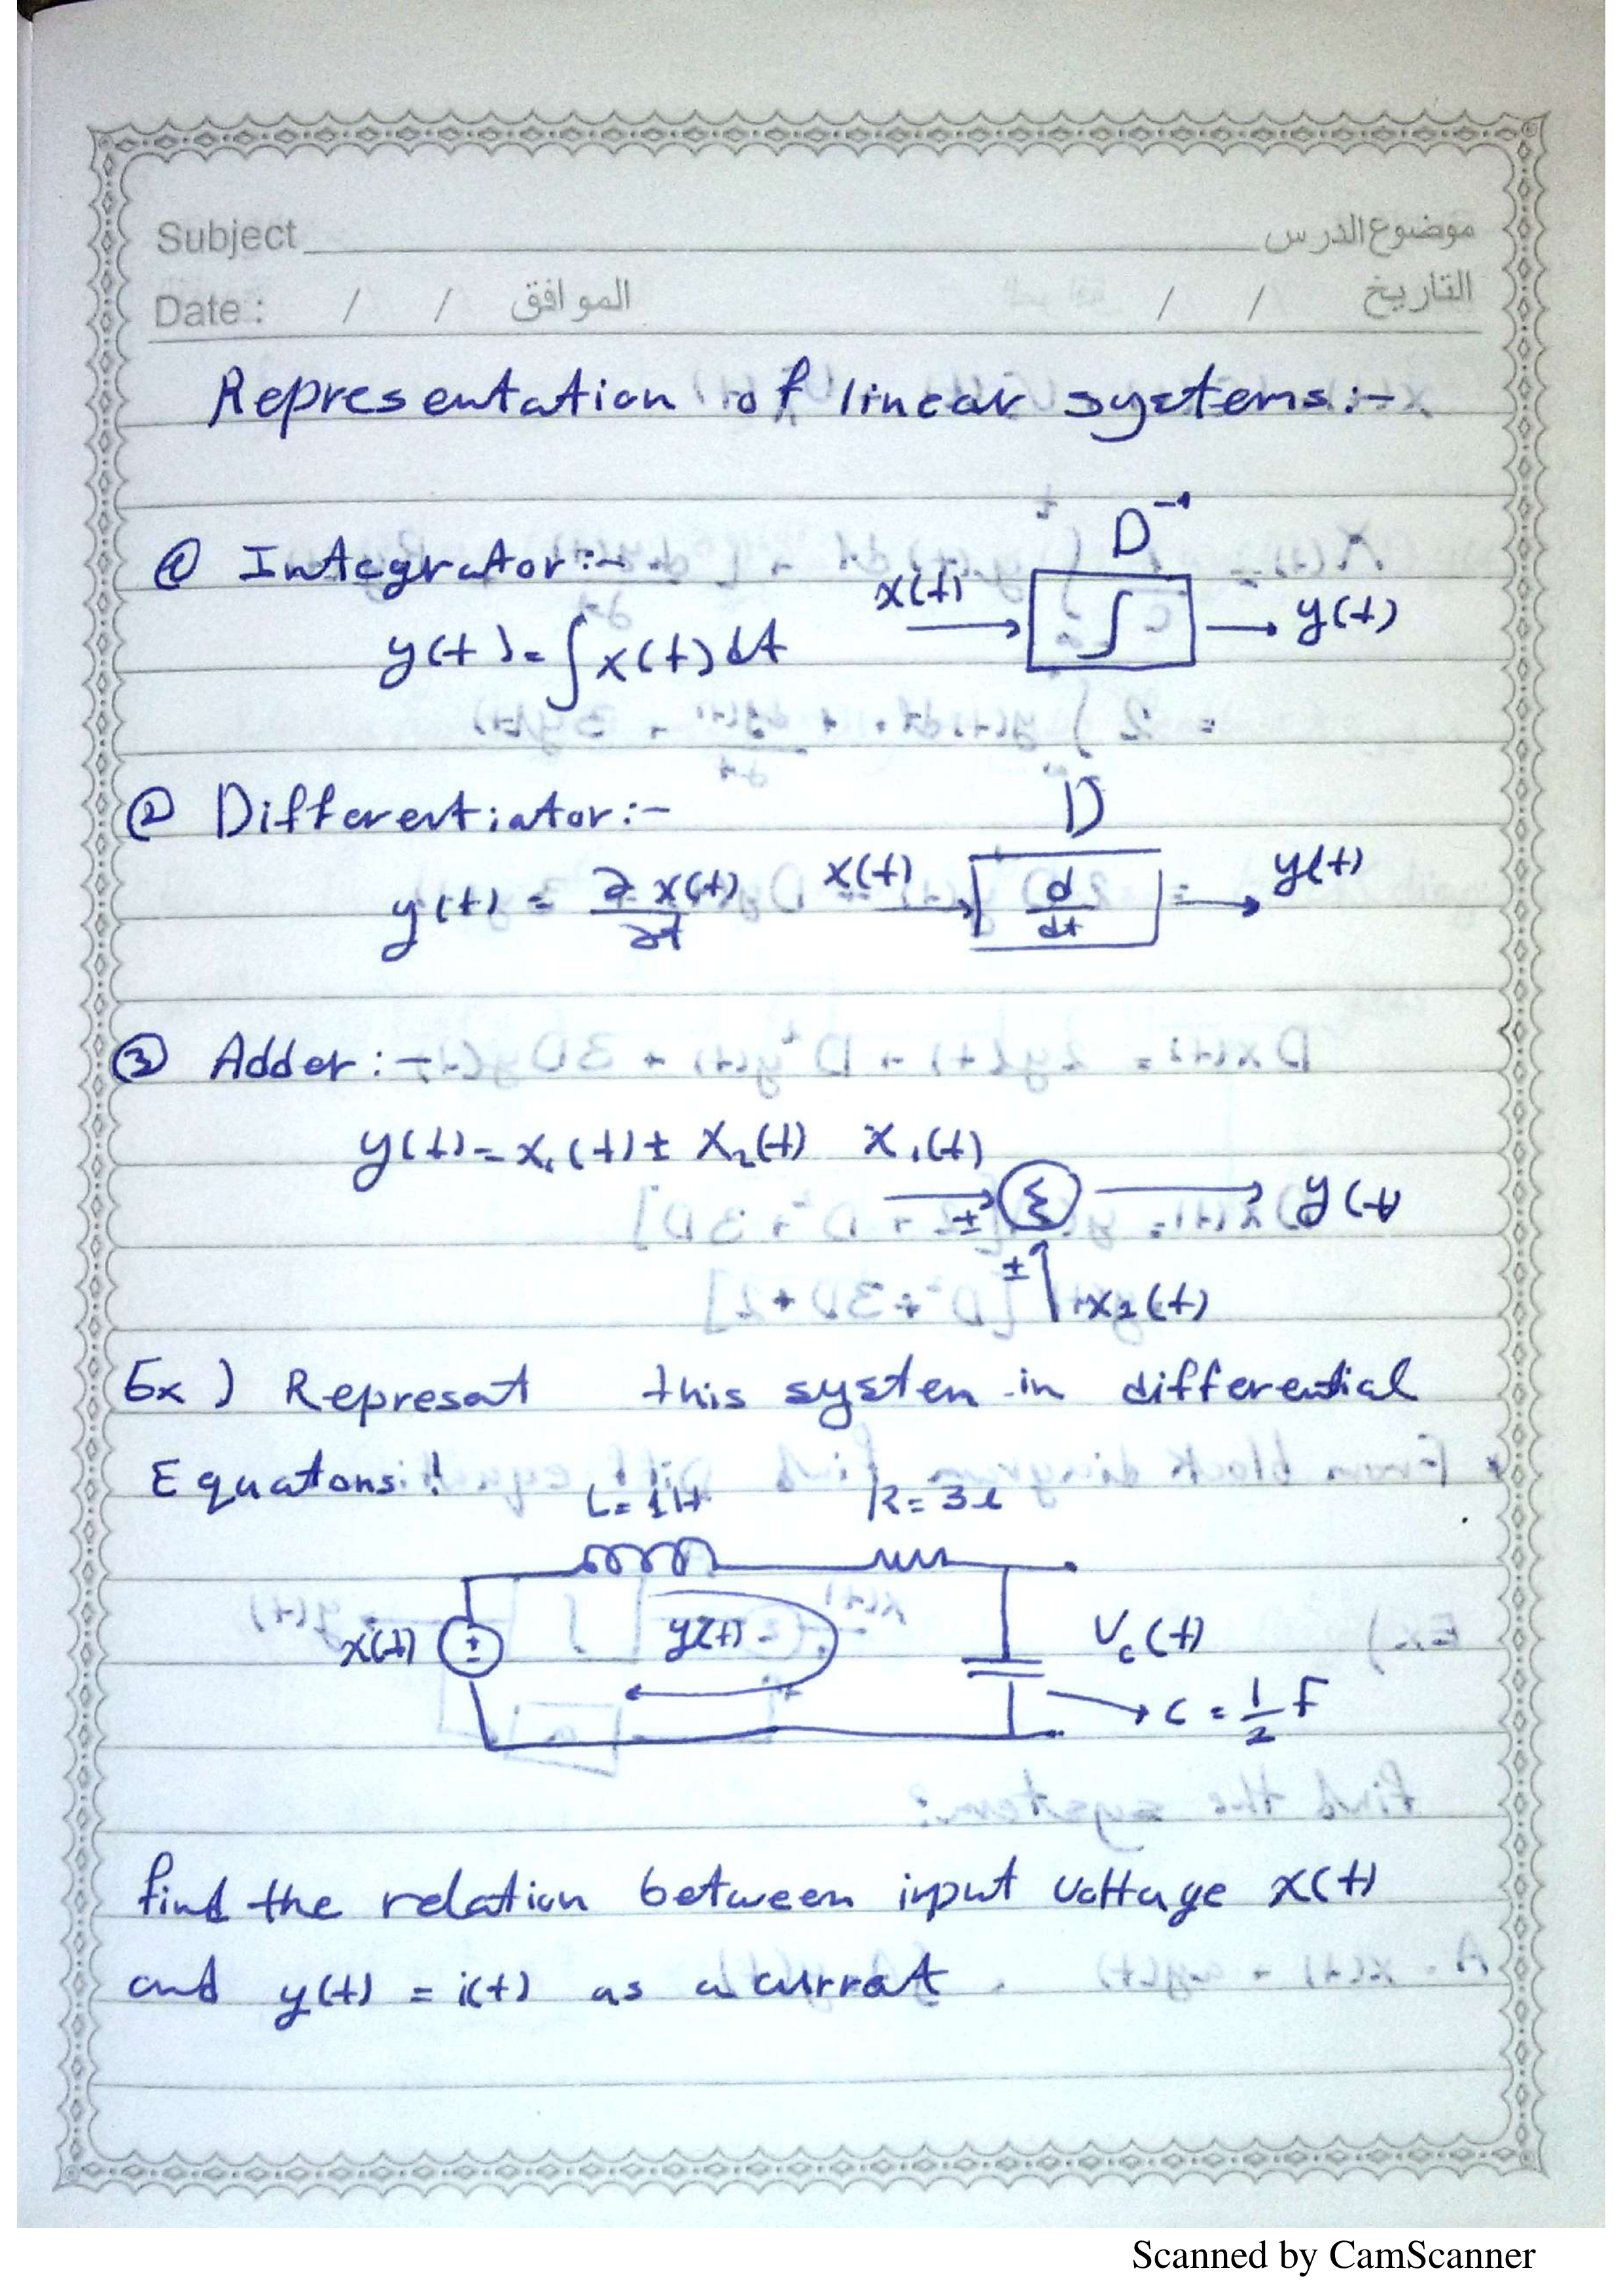 Subject موضوع الدرس
Date : / / الموافق / / التاريخ
Representation of linear systems:-
① Integrator:-
D⁻¹
y(t) = ∫x(t) dt x(t) ∫ y(t)
② Differentiator:-
D
y(t) = ∂x(t)/∂t x(t) d/dt y(t)
③ Adder:-
y(t) = x₁(t) ± x₂(t) x₁(t) ± Σ y(t)
± x₂(t)
Ex) Represat this system in differential
Equatons:!
L = 1H R = 3Ω
x(t) ± y(t) Vc(t)
C = 1/2 F
find the relation between input voltage x(t)
and y(t) = i(t) as a currat
Scanned by CamScanner